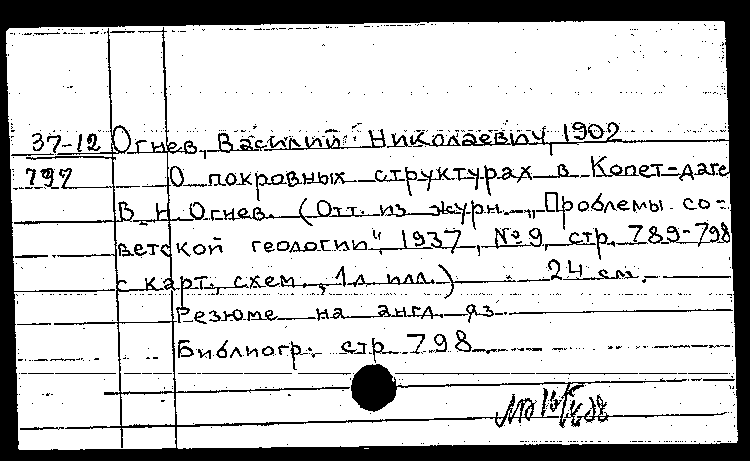 37-12 Огнев, Василий Николаевич, 1902
797 О покровных структурах в Копет-даге
В. Н. Огнев. (Отт. из журн. „Проблемы со-
ветской геологии", 1937, №9, стр. 789-798
с карт., схем., 1 л. илл.) 24 см.
Резюме на англ. яз
Библиогр. стр 798